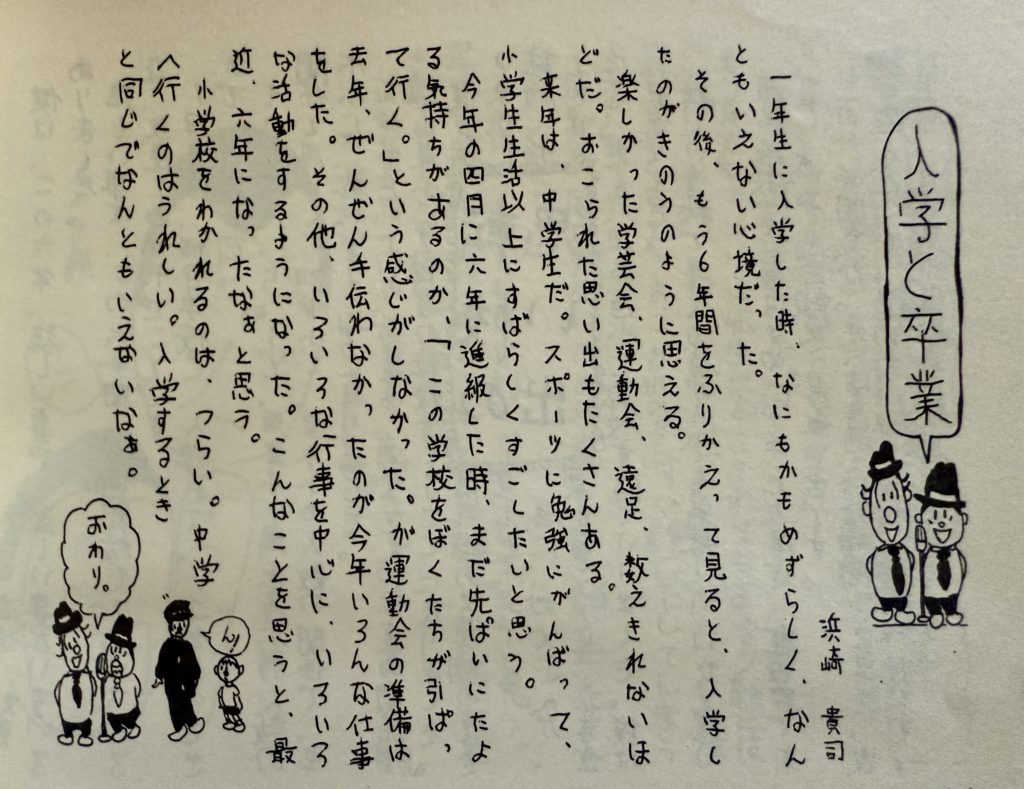 入学と卒業
浜崎 貴司
一年生に入学した時、なにもかもめずらしく、なん
ともいえない心境だった。
その後、もう6年間をふりかえって見ると、入学し
たのがきのうのように思える。
楽しかった学芸会、運動会、遠足、数えきれないほ
どだ。おこられた思い出もたくさんある。
来年は、中学生だ。スポーツに勉強にがんばって、
小学生生活以上にすばらしくすごしたいと思う。
今年の四月に六年に進級した時、まだ先ぱいにたよ
る気持ちがあるのか、「この学校をぼくたちが引ぱっ
て行く。」という感じがしなかった。が運動会の準備は
去年、ぜんぜん手伝わなかったのが今年いろんな仕事
をした。その他、いろいろな行事を中心に、いろいろ
な活動をするようになった。こんなことを思うと、最
近、六年になったなぁと思う。
小学校をわかれるのは、つらい。中学
へ行くのはうれしい。入学するとき
と同じでなんともいえないなぁ。
ん!
おわり。